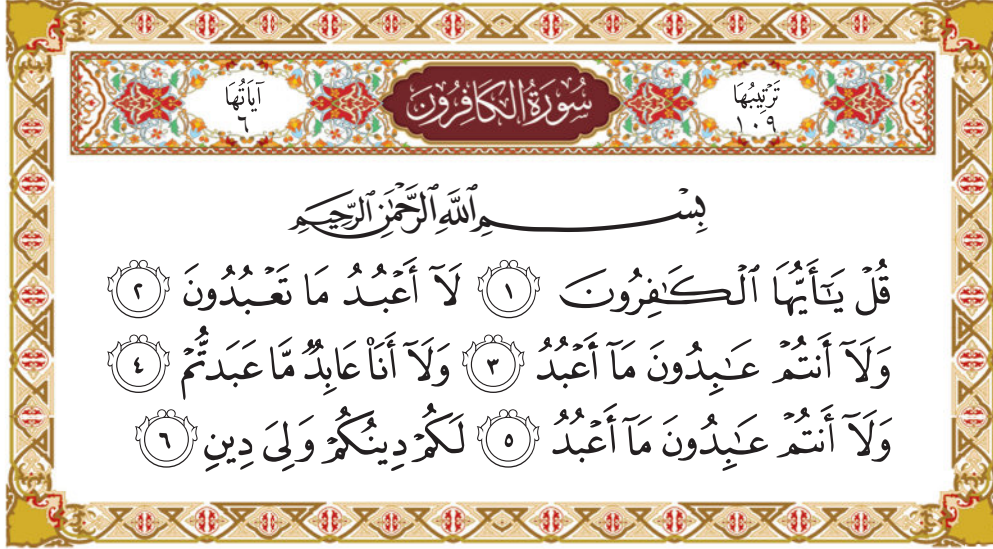 تَرْتِيبُهَا ١٠٩
سُورَةُ الكَافِرُونَ
آيَاتُهَا ٦
بِسْمِ ٱللَّهِ ٱلرَّحْمَٰنِ ٱلرَّحِيمِ
قُلْ يَٰٓأَيُّهَا ٱلْكَٰفِرُونَ ١ لَآ أَعْبُدُ مَا تَعْبُدُونَ ٢
وَلَآ أَنتُمْ عَٰبِدُونَ مَآ أَعْبُدُ ٣ وَلَآ أَنَا۠ عَابِدٌ مَّا عَبَدتُّمْ ٤
وَلَآ أَنتُمْ عَٰبِدُونَ مَآ أَعْبُدُ ٥ لَكُمْ دِينُكُمْ وَلِيَ دِينِ ٦